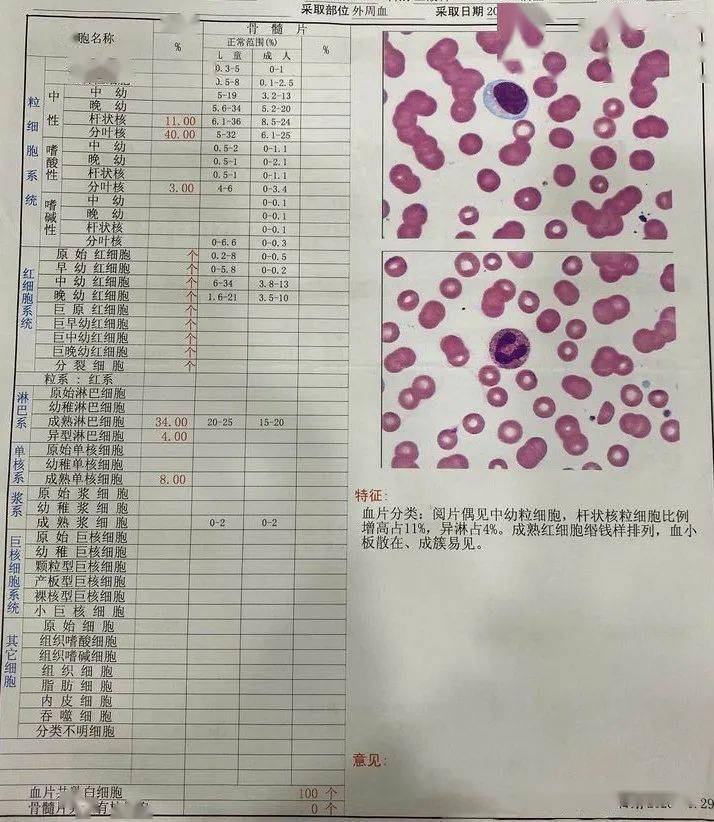 采取部位 外周血 采取日期 20
胞名称 % 骨 髓 片
正常范围(%) %
儿 童 成 人
粒细胞系统
0.3-5 0-1
0.5-8 0.1-2.5
中性
中 幼 5-19 3.2-13
晚 幼 5.6-34 5.2-20
杆状核 11.00 6.1-36 8.5-24
分叶核 40.00 5-32 6.1-25
嗜酸性
中 幼 0.5-2 0-1.1
晚 幼 0.5-1 0-2.1
杆状核 0.5-1 0-1.1
分叶核 3.00 4-6 0-3.4
嗜碱性
中 幼 0-0.1
晚 幼 0-0.1
杆状核 0-0.1
分叶核 0-6.6 0-0.3
红细胞系统
原 始 红细胞 个 0.2-8 0-0.5
早 幼 红细胞 个 0-5.8 0-0.2
中 幼 红细胞 个 6-34 3.8-13
晚 幼 红细胞 个 1.6-21 3.5-10
巨 原 红细胞 个
巨早幼红细胞 个
巨中幼红细胞 个
巨晚幼红细胞 个
分 裂 细 胞 个
粒系 : 红系
淋巴系
原始淋巴细胞
幼稚淋巴细胞
成熟淋巴细胞 34.00 20-25 15-20
异型淋巴细胞 4.00
单核系
原始单核细胞
幼稚单核细胞
成熟单核细胞 8.00
浆系
原 始 浆 细胞
幼 稚 浆 细胞
成 熟 浆 细胞 0-2 0-2
巨核细胞系统
原 始 巨核细胞
幼 稚 巨核细胞
颗粒型巨核细胞
产板型巨核细胞
裸核型巨核细胞
小 巨 核 细 胞
其它细胞
原 始 细 胞
组织嗜酸细胞
组织嗜碱细胞
组 织 细 胞
脂 肪 细 胞
内 皮 细 胞
吞 噬 细 胞
分类不明细胞
血片共 白细胞 100 个
骨髓片 有 0 个
特征:
血片分类: 阅片偶见中幼粒细胞, 杆状核粒细胞比例
增高占11%, 异淋占4%。成熟红细胞缗钱样排列, 血小
板散在、成簇易见。
意见:
29